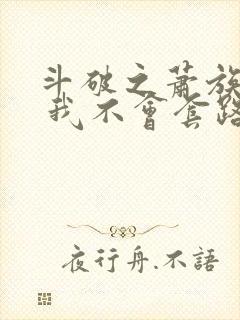 斗破之蕭族
我不會套路
夜行舟.不語